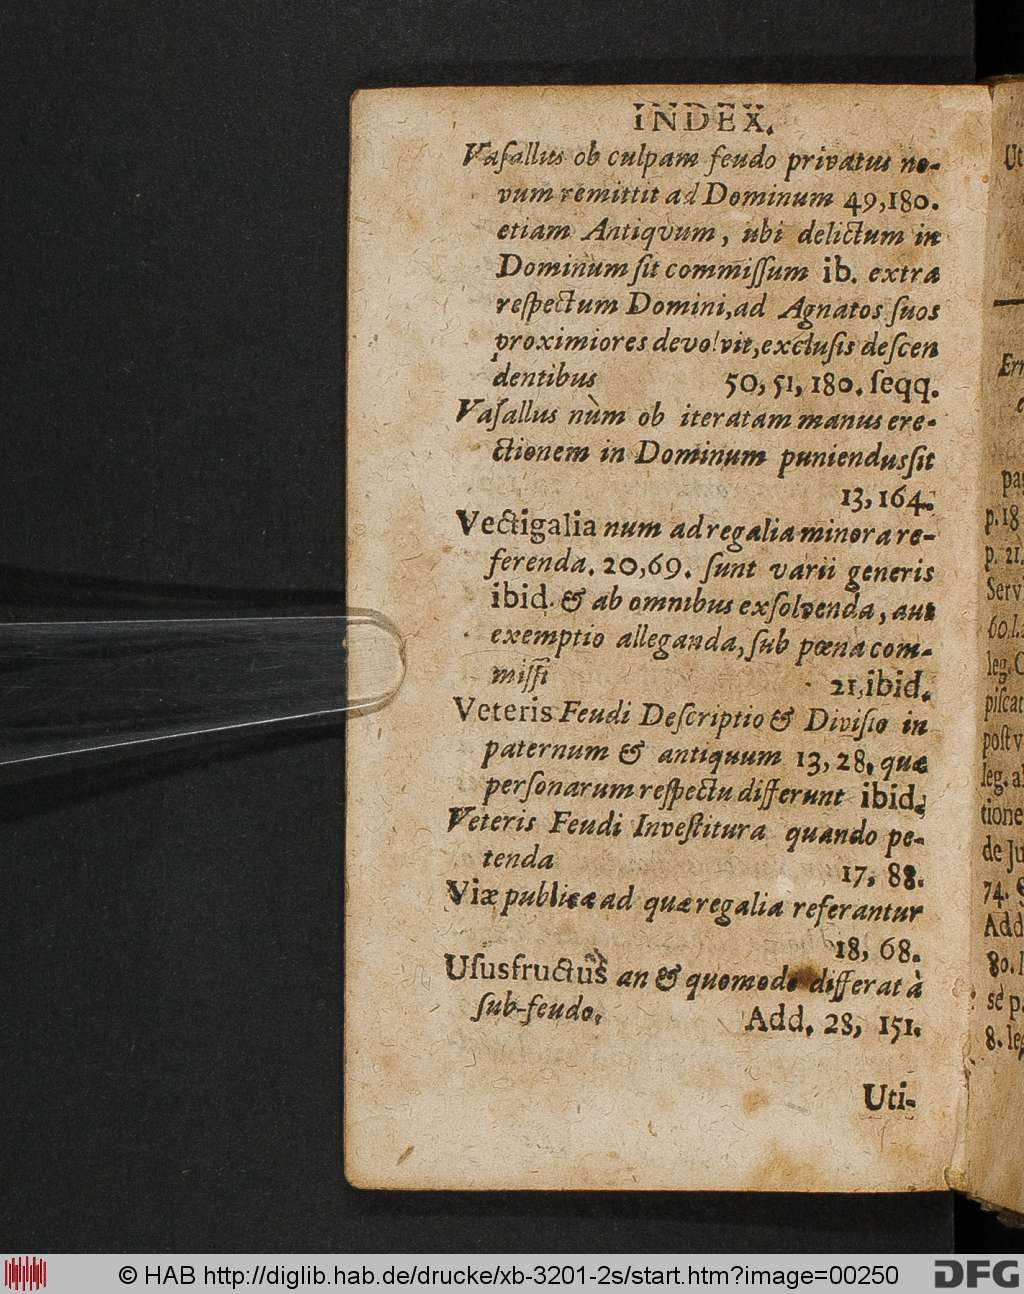 INDEX.
Vaſallus ob culpam feudo privatus no-
vum remittit ad Dominum 49,180.
etiam Antiqvum, ubi delictum in
Dominum ſit commiſſum ib. extra
reſpectum Domini, ad Agnatos ſuos
proximiores devolvit, excluſis deſcen
dentibus 50, 51, 180. ſeqq.
Vaſallus nùm ob iteratam manus ere-
ctionem in Dominum puniendus ſit
13, 164.
Vectigalia num ad regalia minora re-
ferenda. 20,69. ſunt varii generis
ibid. & ab omnibus exſolvenda, aut
exemptio alleganda, ſub pœna com-
miſſi 21, ibid.
Veteris Feudi Deſcriptio & Diviſio in
paternum & antiquum 13, 28. quæ
perſonarum reſpectu differunt ibid.
Veteris Feudi Inveſtitura quando pe-
tenda 17, 88.
Viæ publicæ ad quæ regalia referantur
18, 68.
Uſusfructus an & quomodo differat à
ſub-feudo. Add. 28, 151.
Uti-
Ut
Err
pa
p. 18
p. 21.
Serv
60.l.
leg. C
piſcat
poſt v
leg. a
tione
de Ju
74. S
Add
80. l
se p.
8. leg
© HAB http://diglib.hab.de/drucke/xb-3201-2s/start.htm?image=00250
DFG